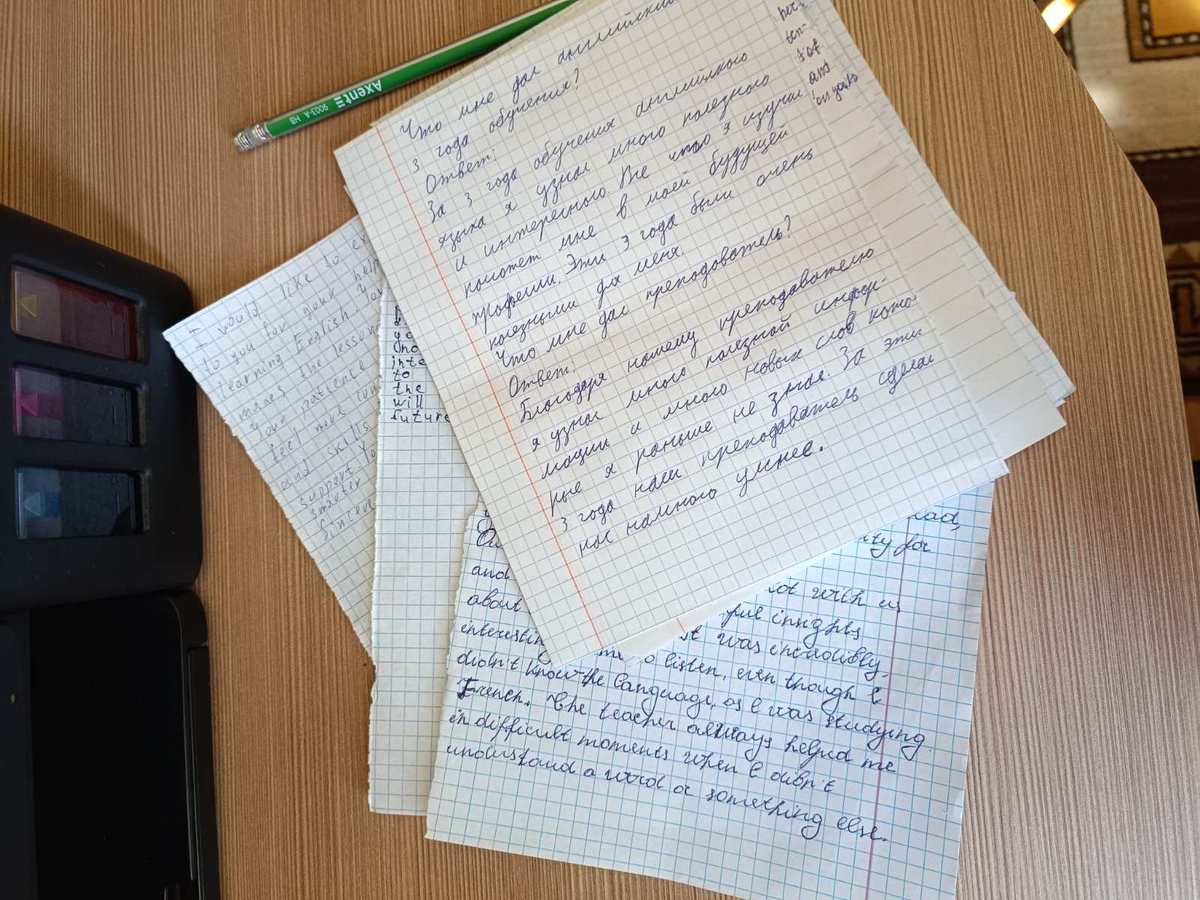 Axent 9003-A HB
Что мне дал английский
3 года обучения?
Ответ:
За 3 года обучения английского
языка я узнал много полезного
и интересного. Все что я изучил
помотет мне в моей будущей
профессии. Эти 3 года были очень
полезными для меня.
Что мне дал преподователь?
Ответ:
Благодаря нашему преподавателю
я узнал много полезной инфор-
мации и много новых слов кото-
рые я раньше не знал. За эти
3 года наш преподаватель сделал
нас намного умнее.
ten-
ans
I would like to
to you for your help
learning English. You
makes the lesson
Your patience
feel more con
and skills
support. You
smarter
Sincere
inte
to
the
will
future
ity for
and
lot with us
about
ful insights
interesting
st was incredibly
me to listen, even though I
didn't know the language, as I was studying
French. The teacher always helped me
in difficult moments when I didn't
understand a word or something else.